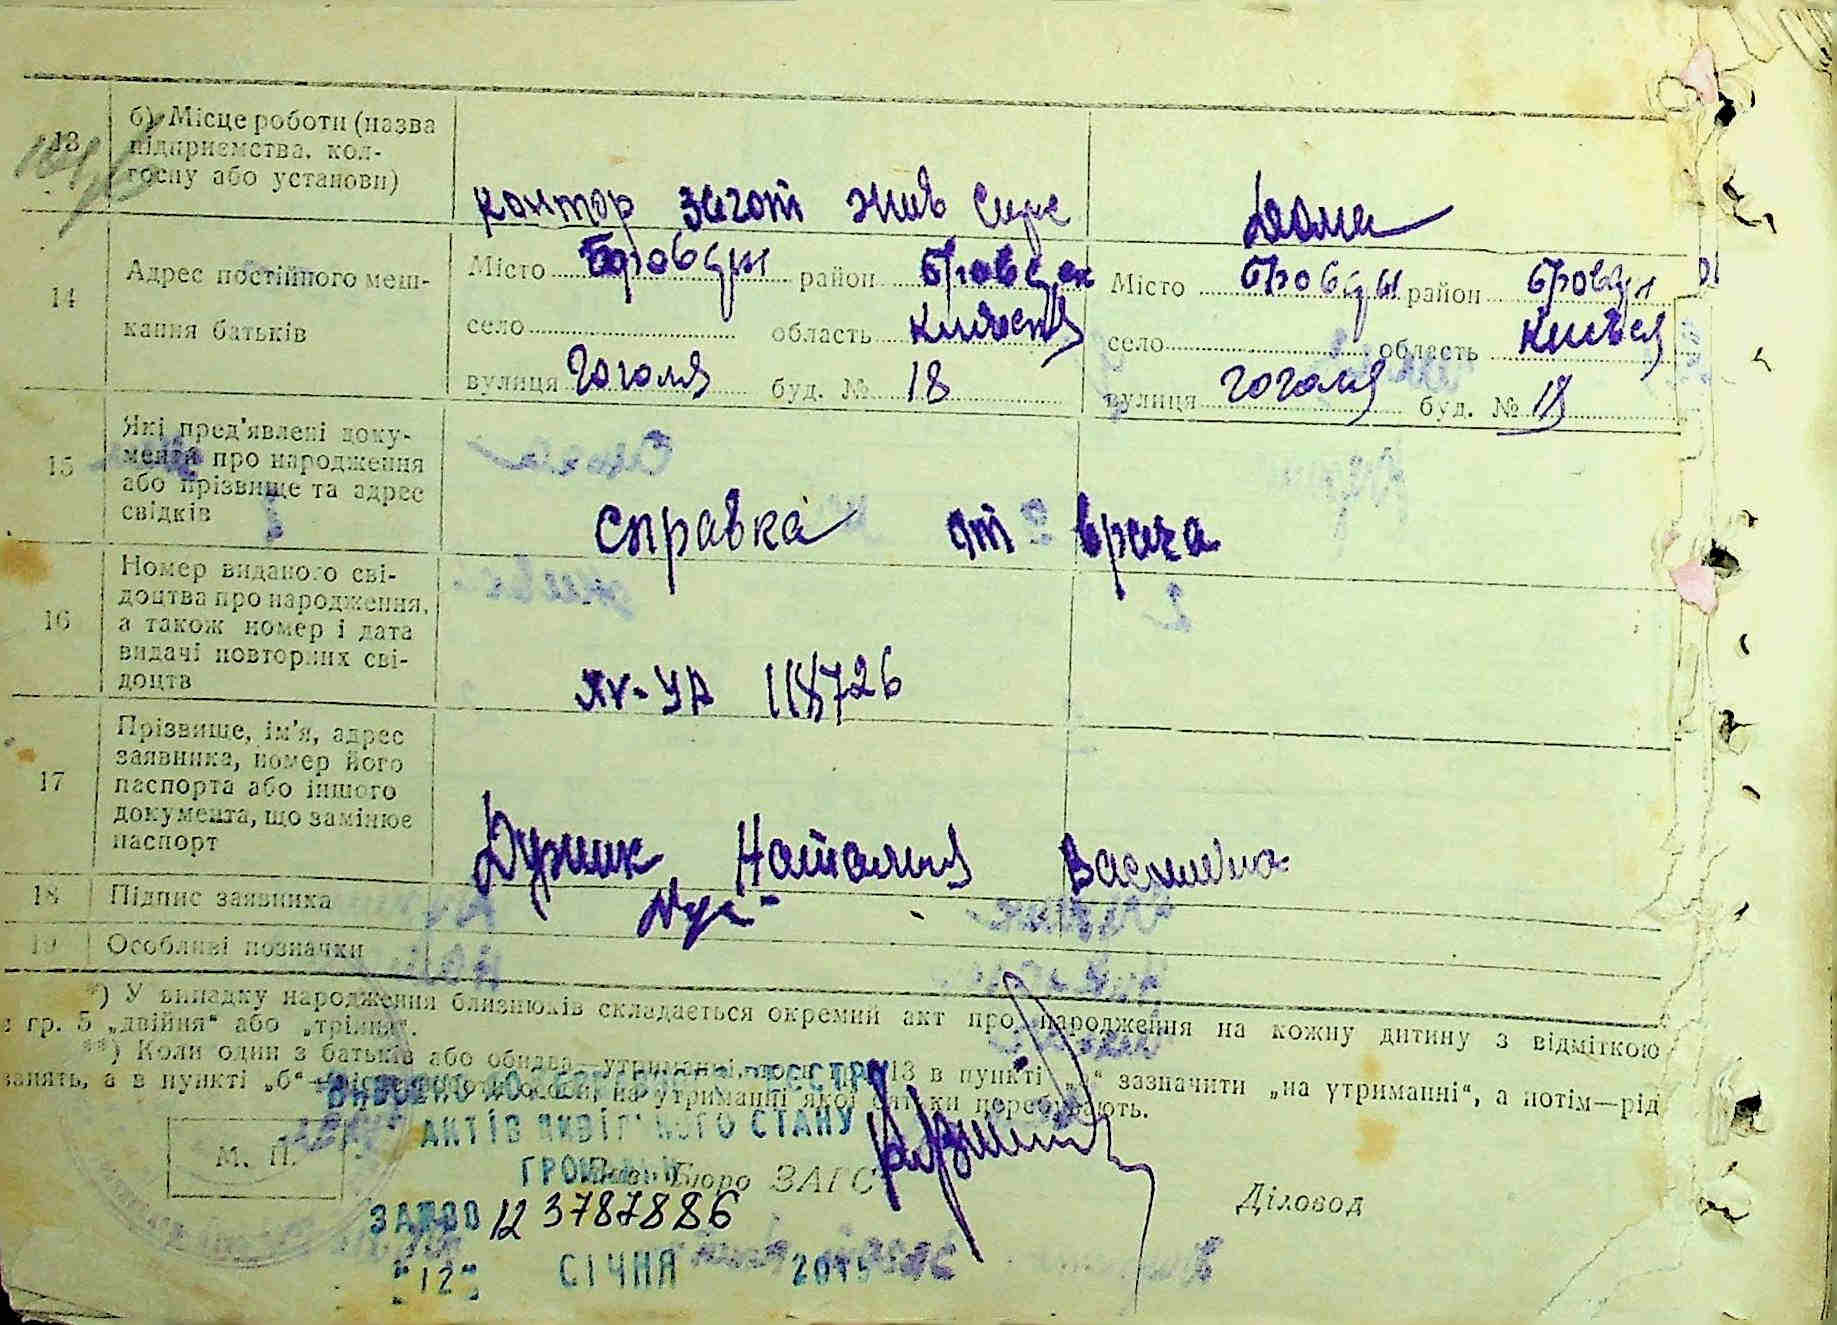 13
б) Місце роботи (назва
підприємства, кол-
госпу або установи)
контор загот жив сирс
Дома
14
Адрес постійного меш-
кання батьків
Місто Бровары район Бровар
село область Киевск
вулиця Гоголя буд. № 18
Місто Бровары район Бровар
село область Киевск
вулиця Гоголя буд. № 18
15
Які пред'явлені доку-
менти про народження
або прізвище та адрес
свідків
справка от врача
16
Номер виданого сві-
доцтва про народження,
а також номер і дата
видачі повторних сві-
доцтв
УА 118726
17
Прізвище, ім'я, адрес
заявника, номер його
паспорта або іншого
документа, що замінює
паспорт
Наталия
18
Підпис заявника
19
Особливі позначки
*) У випадку народження близнюків складається окремий акт про народження на кожну дитину з відміткою
в гр. 5 „двійня“ або „трійня“.
**) Коли один з батьків або обидва утриманці, то в гр. 13 в пункті зазначити „на утриманні“, а потім—рід
занять, а в пункті „б“ на утриманні якої перебувають.
АКТІВ ЦИВІЛЬНОГО СТАНУ
ГРОМАДЯН
М. П.
Зав. Бюро ЗАГС
Діловод
3787886
"12" СІЧНЯ